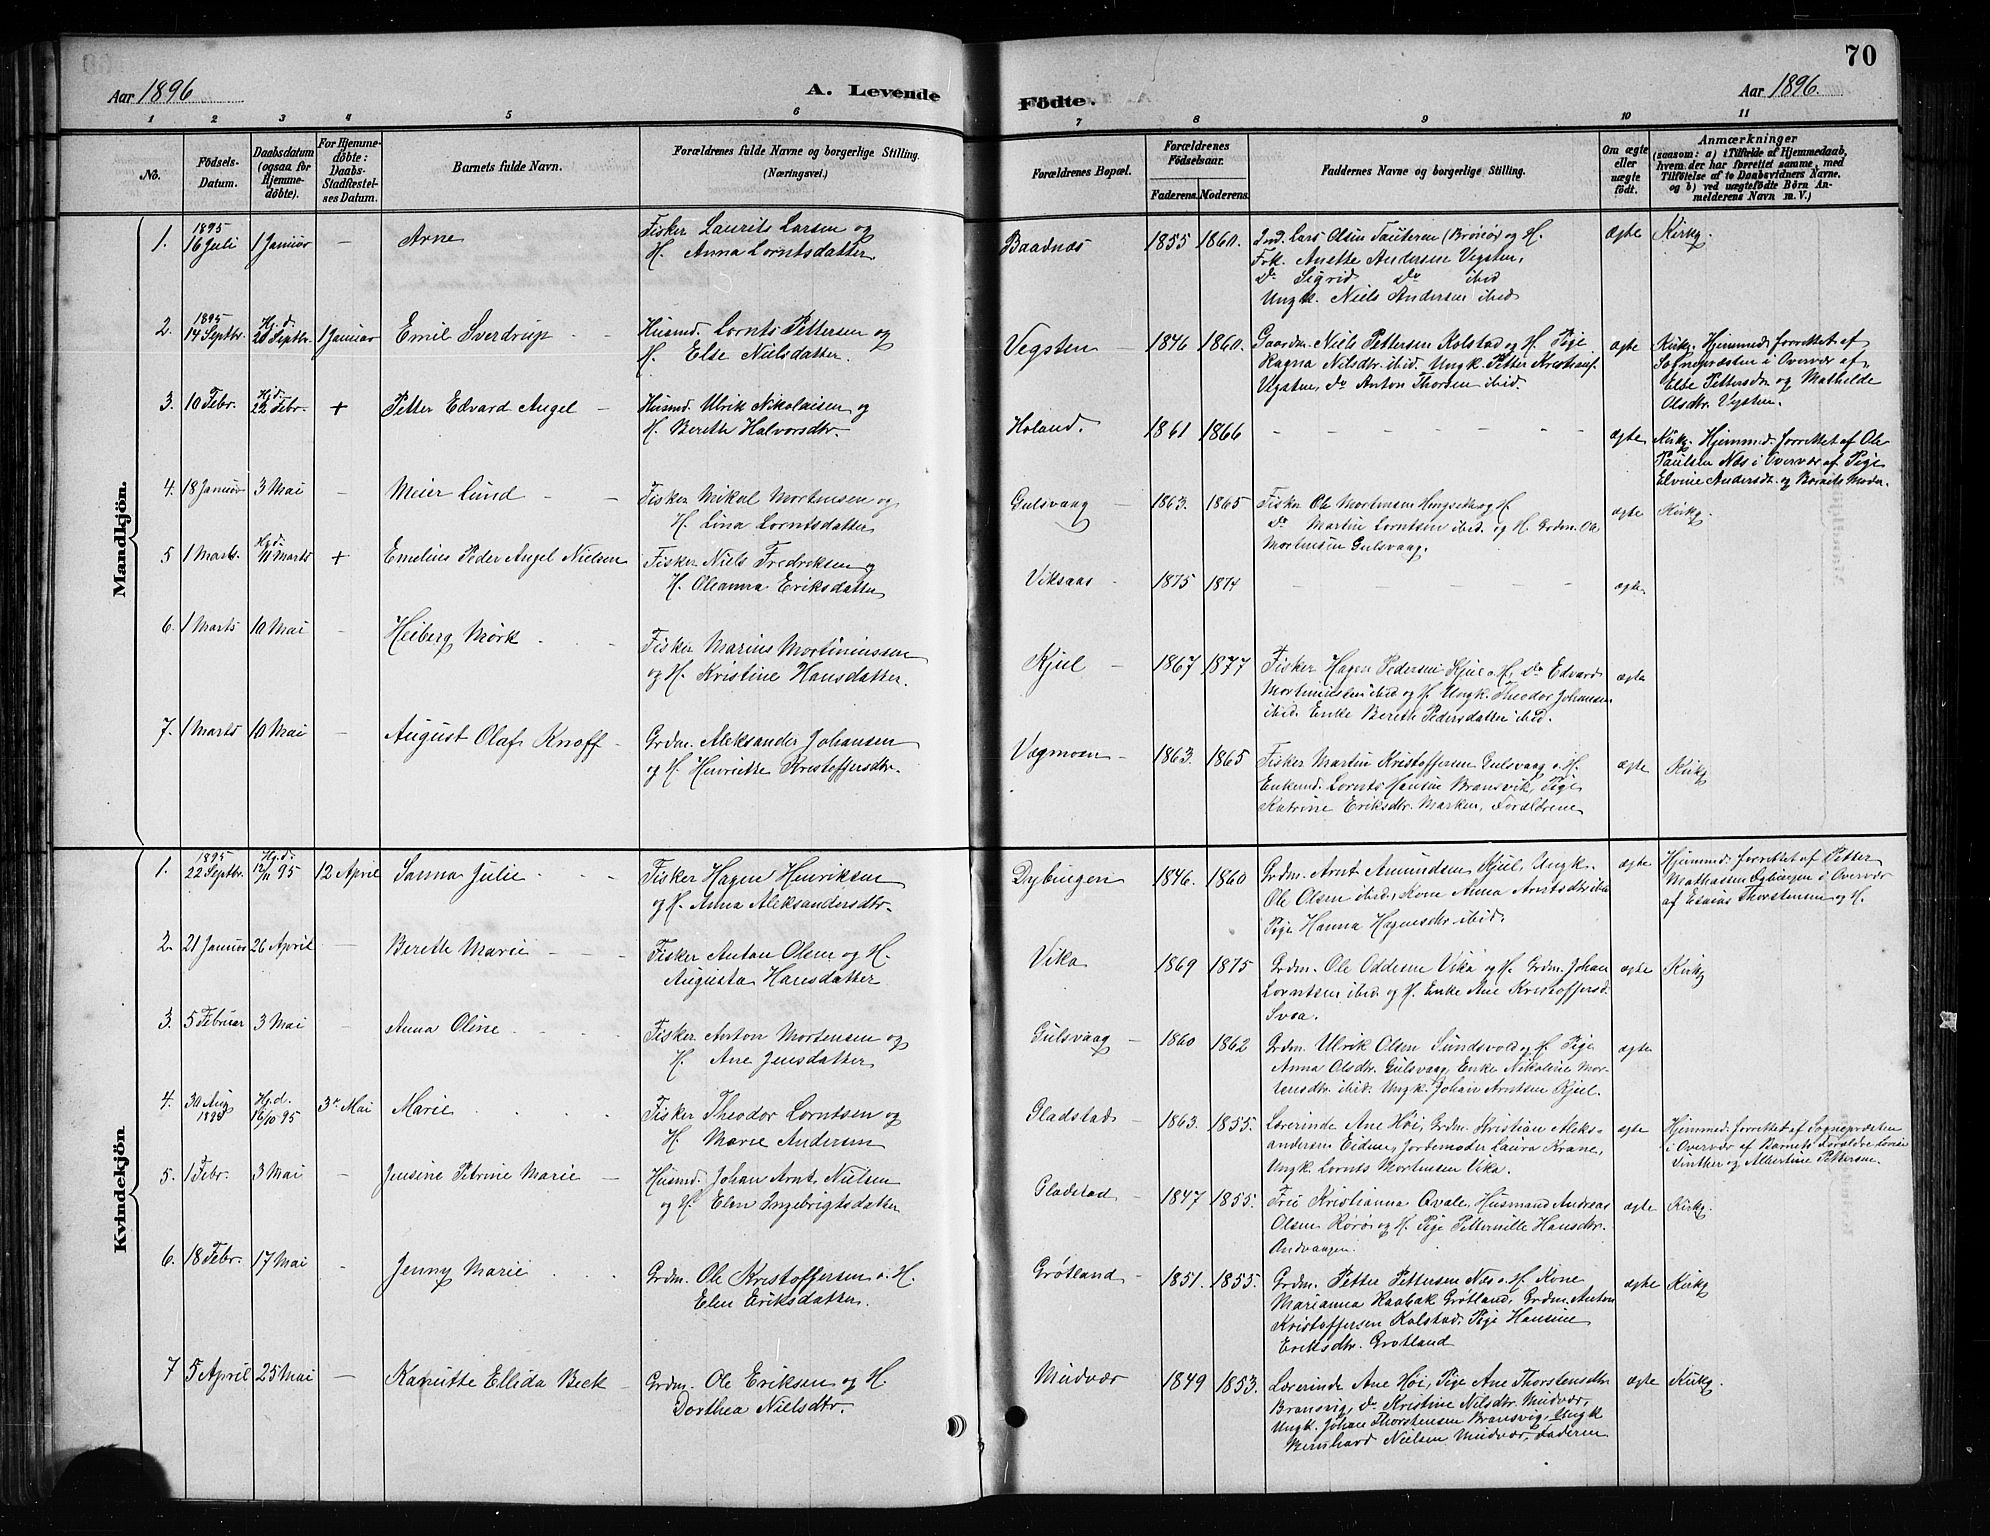 Aar 1896
A. Levende
1 2 3 4 5 6
No.
Födsels-Datum.
Daabsdatum (ogsaa for Hjemmedöbte).
For Hjemmedöbte: Daabs-Stadfæstelses Datum.
Barnets fulde Navn.
Forældrenes fulde Navne og borgerlige Stilling. (Næringsvei.)
Mandkjön.
1. 1895 16 Juli 1 Januar – Arne Fisker Laurits Larsen og
H. Anna Lorntsdatter.
2. 1895 14 Septbr. Hj.d. 20 Septbr. 1 Januar Emil Sverdrup Husmd. Lornts Pettersen og
H. Else Nielsdatter.
3. 10 Febr. Hj.d. 22 Febr. + Petter Edvard Angel – Husmd. Ulrik Nikolaisen og
H. Berith Halvorsdtr.
4. 18 Januar 3 Mai – Meier Lund – Fisker Mikal Mortensen og
H. Lina Lorntsdatter
5 1 Marts. Hj.d. 11 Marts + Emelius Peder Angel Nielsen Fisker Niels Fredriksen og
H. Oleanna Eriksdatter
6. 1 Marts 10 Mai – Heiberg Mørk Fisker Marius Mortiniussen
og H. Kristine Hansdatter.
7. 1 Marts 10 Mai – August Olaf Knoff – Grdm. Aleksander Johansen
og H. Henriette Kristoffersdtr.
Kvindekjön
1. 1895 22 Septbr. Hj.d. 12/11 95 12 April Sanna Julie Fisker Hagen Henriksen
og H. Anna Aleksandersdtr.
2. 21 Januar 26 April – Berith Marie Fisker Anton Olsen og H.
Augusta Hansdatter
3. 5 Februar 3 Mai – Anna Oline Fisker Anton Mortensen og
H. Ane Jensdatter
4. 30 Aug 1895 Hj.d. 16/10 95 3 Mai Marie Fisker Theodor Lorntsen og
H. Marie Andersen
5. 1 Febr. 3 Mai – Jensine Petrine Marie – Husmd. Johan Arnt Nielsen
og H. Elen Ingebrigtsdatter
6. 18 Febr. 17 Mai – Jenny Marie Grdm. Ole Kristoffersen o. H.
Elen Eriksdatter.
7 5 April 25 Mai – Kanutte Ellida Beck – Grdm. Ole Eriksen og H.
Dorthea Nielsdtr.
70
Födte.
Aar 1896.
7 8 9 10 11
Forældrenes Bopæl.
Forældrenes Födselsaar.
Faderens. Moderens.
Faddernes Navne og borgerlige Stilling.
Om ægte eller uægte födt.
Anmærkninger (saasom: a) i Tilfælde af Hjemmedaab, hvem der har forrettet samme, med Tilföielse af to Daabsvidners Navne, og b) ved uægtefödte Börn Anmelderens Navn m. V.)
Baadnæs 1855 1860. Ind. Lars Olsen Tauteren (Brönö) og H. ægte Kirkg.
Frk. Anette Andersen Vegsten,
Do Sigrid Do ibid
Ungk. Niels Andersen ibid
Vegsten – 1846 1860. Gaardm. Niels Pettersen Kolstad og H. Pige ægte Kirkg. Hjemmed. forrettet af
Ragna Nilsdtr. ibid. Ungk. Petter Kristians. Sognepræsten i Overvær af
Vegsten, Do Anton Thorsen ibid. Else Pettersdtr og Mathilde
Olsdtr. Vegsten.
Holand. 1861 1866 – – – – – – ægte Kirkg. Hjemmed. forrettet af Ole
Paulsen Næs i Overvær af Pige
Elvine Andersdt. og Barnets Moder.
Gulsvaag – 1863. 1865 Fisker Ole Mortensen og H. ægte Kirkg.
Do Martin Lorntsen ibid. og H. Grdm. Ole
Mortensen Gulsvaag.
Viksaas 1875 1874 – – – – – ægte
Kjul – 1867 1877 Fisker Hagen Pedersen Kjul o. H. Do Edvard ægte
Mortiniussen ibid og H. Ungk. Theodor Johansen
ibid. Enke Berith Pedersdatter ibid.
Vegmoen – 1863. 1865 Fisker Martin Kristoffersen Gulsvaag o. H. ægte Kirkg
Enkemd. Lornts Hansen Bransvik, Pige
Katrine Eriksdtr. Marken, Forældrene
Dybingen 1846. 1860 Grdm. Arnt Amundsen Kjul, Ungk. ægte Hjemmed. forrettet af Petter
Ole Olsen ibid., Kone Anna Arntsdtr ibid Mathæsen Dybingen i Overvær
Pige Hanna Hagensdtr. ibid. af Esaias Thorstensen og H.
Vika 1869 1875 Grdm. Ole Oddesen Vika og H. Grdm. Johan ægte Kirkg
Lorntsen ibid og H. Enke Ane Kristoffersd.
Svaa.
Gulsvaag – 1860 1862 Grdm. Ulrik Olsen Sundsvold og H. Pige ægte
Anna Olsdtr. Gulsvaag, Enke Nikoline Mor-
tensdtr. ibid. Ungk. Johan Arntsen Kjul.
Gladstad – 1863. 1855. Lærerinde Ane Høi, Grdm. Kristian Aleks- ægte Hjemmed. forrettet af Sognepræsten
andersen Eidem, Jordemoder Laura Krane, i Overvær af Barnets Forældre
Ungk. Lornts Mortensen Vika. og Albertine Pettersen.
Gladstad – 1847 1855. Fru Kristianna Qvale, Husmand Andreas ægte Kirkg.
Olsen Rørø og H. Pige Petternille Hansdtr.
Andvaagen.
Grøtland – 1851. 1855. Grdm. Petter Pettersen Næs o. H. Kone ægte Kirkg
Marianna Raabak Grøtland, Grdm. Anton
Kristoffersen Kolstad. Pige Hansine
Eriksdtr. Grøtland
Mudvær 1849 1853. Lærerinde Ane Høi, Pige Ane Thorstensdtr ægte Kirkg.
Bransvig, Do Kristine Nilsdtr. Mudvær,
Ungk. Johan Thorstensen Bransvig, Ungk
Bernhard Nielsen Mudvær, Faderen